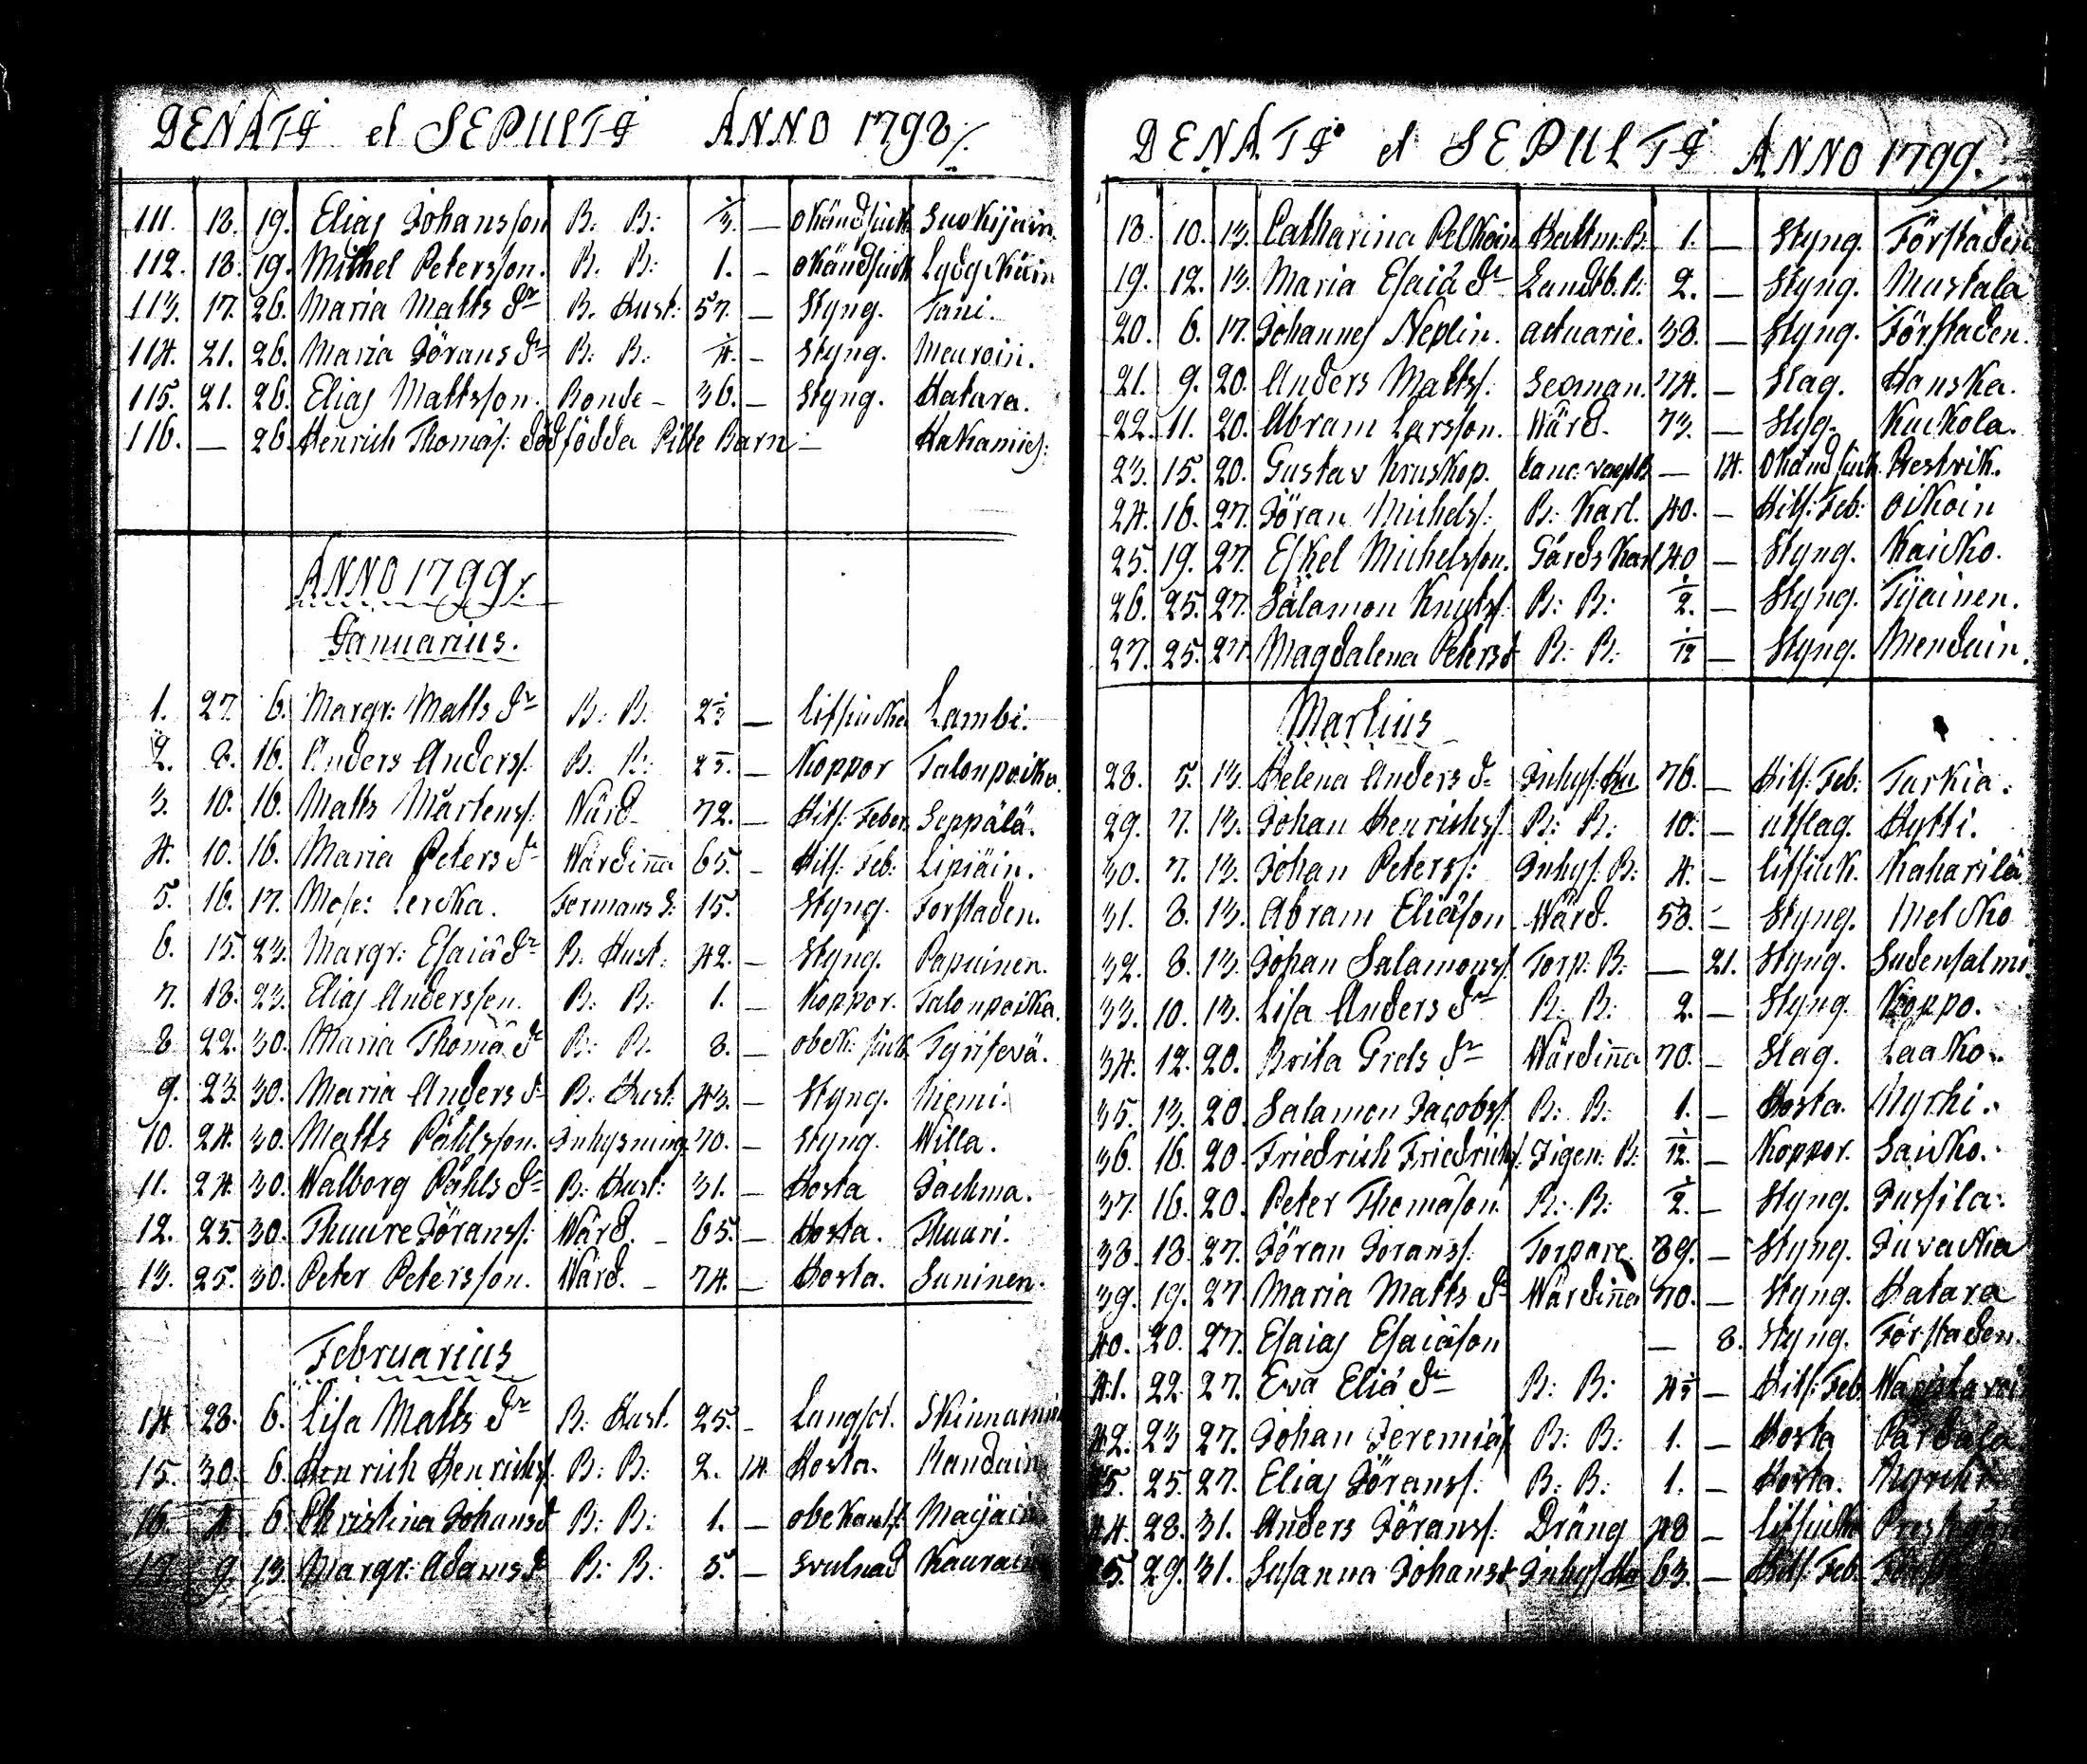 DENATI et SEPULTI ANNO 1798.
111. 18. 19. Elias Johansson B. B: 1/3. — okänd siuk Suokijain
112. 18. 19. Michel Petersson. B. B: 1. — okänd siuk Lydykäin
113. 17. 26. Maria Matts dr B. Hust: 57. — Styng. Tani.
114. 21. 26. Maria Jörans dr B: B: 1/4. — Styng. Meuroin.
115. 21. 26. Elias Mattsson. Bonde — 36. — Styng. Hatara.
116. — 26. Henrich Thomas: död födda Pilte Barn — Hakamies:
ANNO 1799.
Januarius.
1. 27. 6. Margr: Matts dr B: B. 2 1/2 — litsiuka Lambi.
2. 8. 16. Anders Anders: B. B: — Koppor Talonpoika.
3. 10. 16. Matts Mårtens: Wärd — 72. — Hits: Feber Seppälä.
4. 10. 16. Maria Peters dr Wärdinna 65. — Hits: Feb: Lipiäin.
5. 16. 17. Mose: 15. Styng. Forstaden.
6. 15. 23. Margr: Esaiæ dr B. Hust: 42. — Styng. Papuinen.
7. 18. 23. Elias Andersson. B: B: 1. — Koppor. Talonpoika.
8. 22. 30. Maria Thomæ dr B: B. 8. — obek: siuk Tyrisevä.
9. 23. 30. Maria Anders dr B. Hust. 43. — Styng. Niemi.
10. 24. 30. Matts Påhlsson. Inhysning 70. — Styng. Willa.
11. 24. 30. Walborg Påhls dr B: Hust: 31. — Hosta Jackma.
12. 25. 30. Thuure Jörans: Wärd. — 65. — Hosta. Thuuri.
13. 25. 30. Peter Petersson. Wärd. — 74. — Hosta. Suninen.
Februarius
14. 28. 6. Lisa Matts dr B: Hust. 25. — Langsot.
15. 30. 6. Henrich Henrichs: B: B: 2. 14. Hosta. Handain
16. 4. 6. Christina Johans d B: B: 1. —
17. 9. 13. Margr: Adams d B: B: 5. — svulnad
DENATI et SEPULTI ANNO 1799.
18. 10. 13. Catharina Pelkoin 1. — Styng. Förstaden
19. 12. 13. Maria Esaiæ dr Landtb. B: 2. — Styng. Mustala
20. 6. 17. Johannes Neplin. actuarie. 38. — Styng. Förstaden.
21. 9. 20. Anders Matts: Seoman. 74. — Slag. Hanska.
22. 11. 20. Abram Larsson. Wärd. 73. — Slag. Kuckola.
23. 15. 20. Gustav Kruskop. — 14. okänd siuk. Prestvik.
24. 16. 27. Jöran Michels: B: Karl. 40. — Hits: Feb: Oikoin
25. 19. 27. Eskel Michelsson. Gårds Karl 40 — Styng. Kaicko.
26. 25. 27. Salamon Knuts: B: B: 1/2. — Styng. Tijainen.
27. 25. 27. Magdalena Peters d B: B: 1/12 — Styng. Mendäin.
Martius
28. 5. 13. Helena Anders dr Inhys: Hu 76. — Hits: Feb: Turkia.
29. 7. 13. Johan Henrichs: B: B: 10. — utslag. Hytti.
30. 7. 13. Johan Peters: Inhys: B: 4. — litsiuk. Kaharila
31. 8. 13. Abram Eliæson Wärd. 58. — Styng. Melcko
32. 8. 13. Johan Salamons: Torp: B: — 21. Styng. Sudensalmi
33. 10. 13. Lisa Anders dr B: B: 2. — Styng. Koppo.
34. 12. 20. Brita Grels dr Wärdinna 70. — Slag. Laako.
35. 13. 20. Salamon Jacobs: B: B: 1. — Hosta. Myrhi.
36. 16. 20. Friedrich Friedrichs: Zigen: B: 1/12. — Koppor. Saicko.
37. 16. 20. Peter Thomæson. B: B: 1/2. — Styng. Jussila.
38. 18. 27. Jöran Jörans: Torpare. 89. — Styng. Juvacka
39. 19. 27. Maria Matts dr Wärdinna 70. — Styng. Hatara
40. 20. 27. Esaias Esaiæson — 8. Styng. Förstaden.
41. 22. 27. Eva Eliæ dr B: B: 4 1/2 — Hits: Feb.
42. 23. 27. Johan Jeremiæs: B: B: 1. — Hosta Pärdälä
25. 27. Elias Jörans: B: B: 1. — Hosta.
44. 28. 31. Anders Jörans: Dräng 48 — litsiuk
29. 31. Susanna Johans d Inhys: Hu 63. — Hits: Feb.